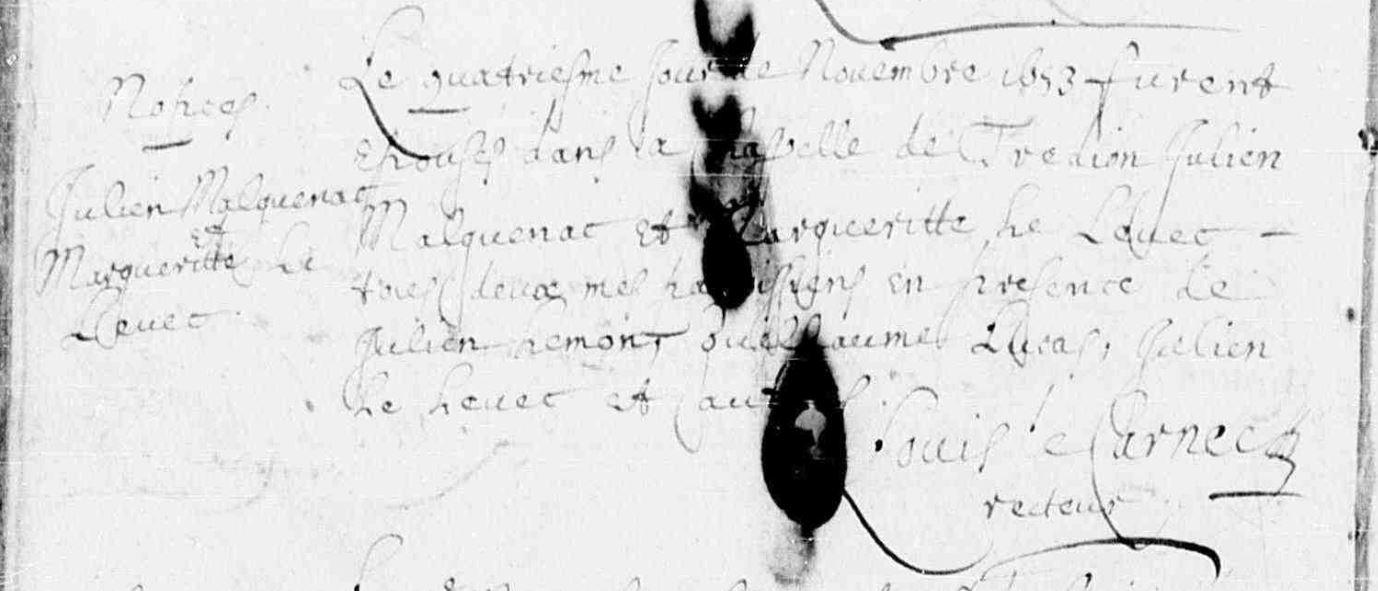 Nopces
Julien Malquenac
Et
Margueritte Le
Levec
Le quatriesme jour de Novembre 1653 furent
Epousés dans la chapelle de Tredion Julien
Malquenac Et Margueritte Le Levec
tous deux mes parroissiens En presence de
Julien Lemont, Guillaume Lucas, Julien
Le Levec et autres.
Louis le Carnec
recteur